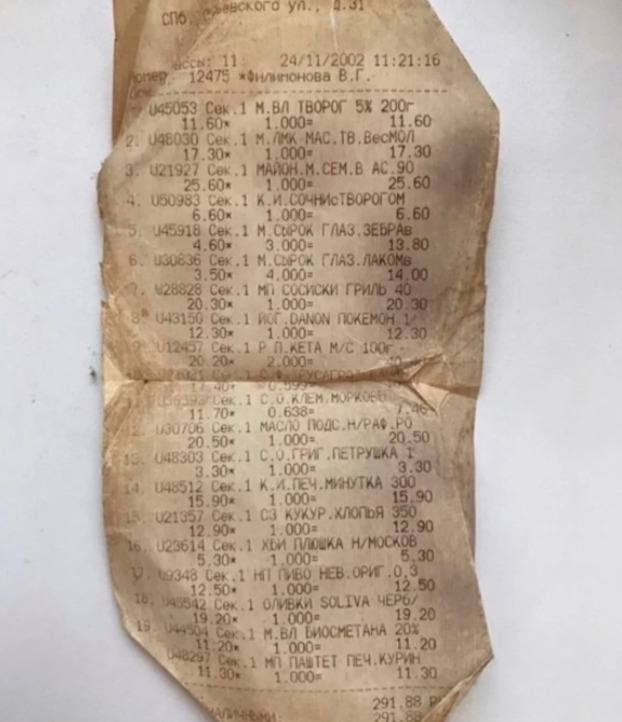 СПб, ул., д.31
11 24/11/2002 11:21:16
Номер 12475 *Филимонова В.Г.
U45053 Сек.1 М.ВЛ ТВОРОГ 5% 200г
11.60* 1.000= 11.60
2. U48030 Сек.1 М.ЛМК МАС.ТВ.ВесМОЛ
17.30* 1.000= 17.30
3. U21927 Сек.1 МАЙОН.М.СЕМ.В АС.90
25.60* 1.000= 25.60
4. U50983 Сек.1 К.И.СОЧНИсТВОРОГОМ
6.60* 1.000= 6.60
5. U45918 Сек.1 М.СЫРОК ГЛАЗ.ЗЕБРАв
4.60* 3.000= 13.80
6. U30836 Сек.1 М.СЫРОК ГЛАЗ.ЛАКОМв
3.50* 4.000= 14.00
7. W28828 Сек.1 МП СОСИСКИ ГРИЛЬ 40
20.30* 1.000= 20.30
8. U43150 Сек.1 ЙОГ.DANON ПОКЕМОН 1/
12.30* 1.000= 12.30
9 U12457 Сек.1 Р П.КЕТА М/С 100г
20.20* 2.000=
Сек.1
17.40* 0.599=
Сек.1 С.О.КЛЕМ.МОРКОВЬ
11.70* 0.638= 7.46
12. U30706 Сек.1 МАСЛО ПОДС.Н/РАФ.РО
20.50* 1.000= 20.50
13. U48303 Сек.1 С.О.ГРИГ.ПЕТРУШКА 1
3.30* 1.000= 3.30
14. U48512 Сек.1 К.И.ПЕЧ.МИНУТКА 300
15.90* 1.000= 15.90
15. U21357 Сек.1 СЗ КУКУР.ХЛОПЬЯ 350
12.90* 1.000= 12.90
16. U23614 Сек.1 ХБИ ПЛЮШКА Н/МОСКОВ
5.30* 1.000= 5.30
17. U9348 Сек.1 НП ПИВО НЕВ.ОРИГ.0,3
12.50* 1.000= 12.50
18. U45542 Сек.1 ОЛИВКИ SOLIVA ЧЕРб/
19.20* 1.000= 19.20
19. U44504 Сек.1 М.ВЛ БИОСМЕТАНА 20%
11.20* 1.000= 11.20
U48297 Сек.1 МП ПАШТЕТ ПЕЧ.КУРИН
11.30* 1.000= 11.30
291.88
НАЛИЧНЫМИ: 291.88